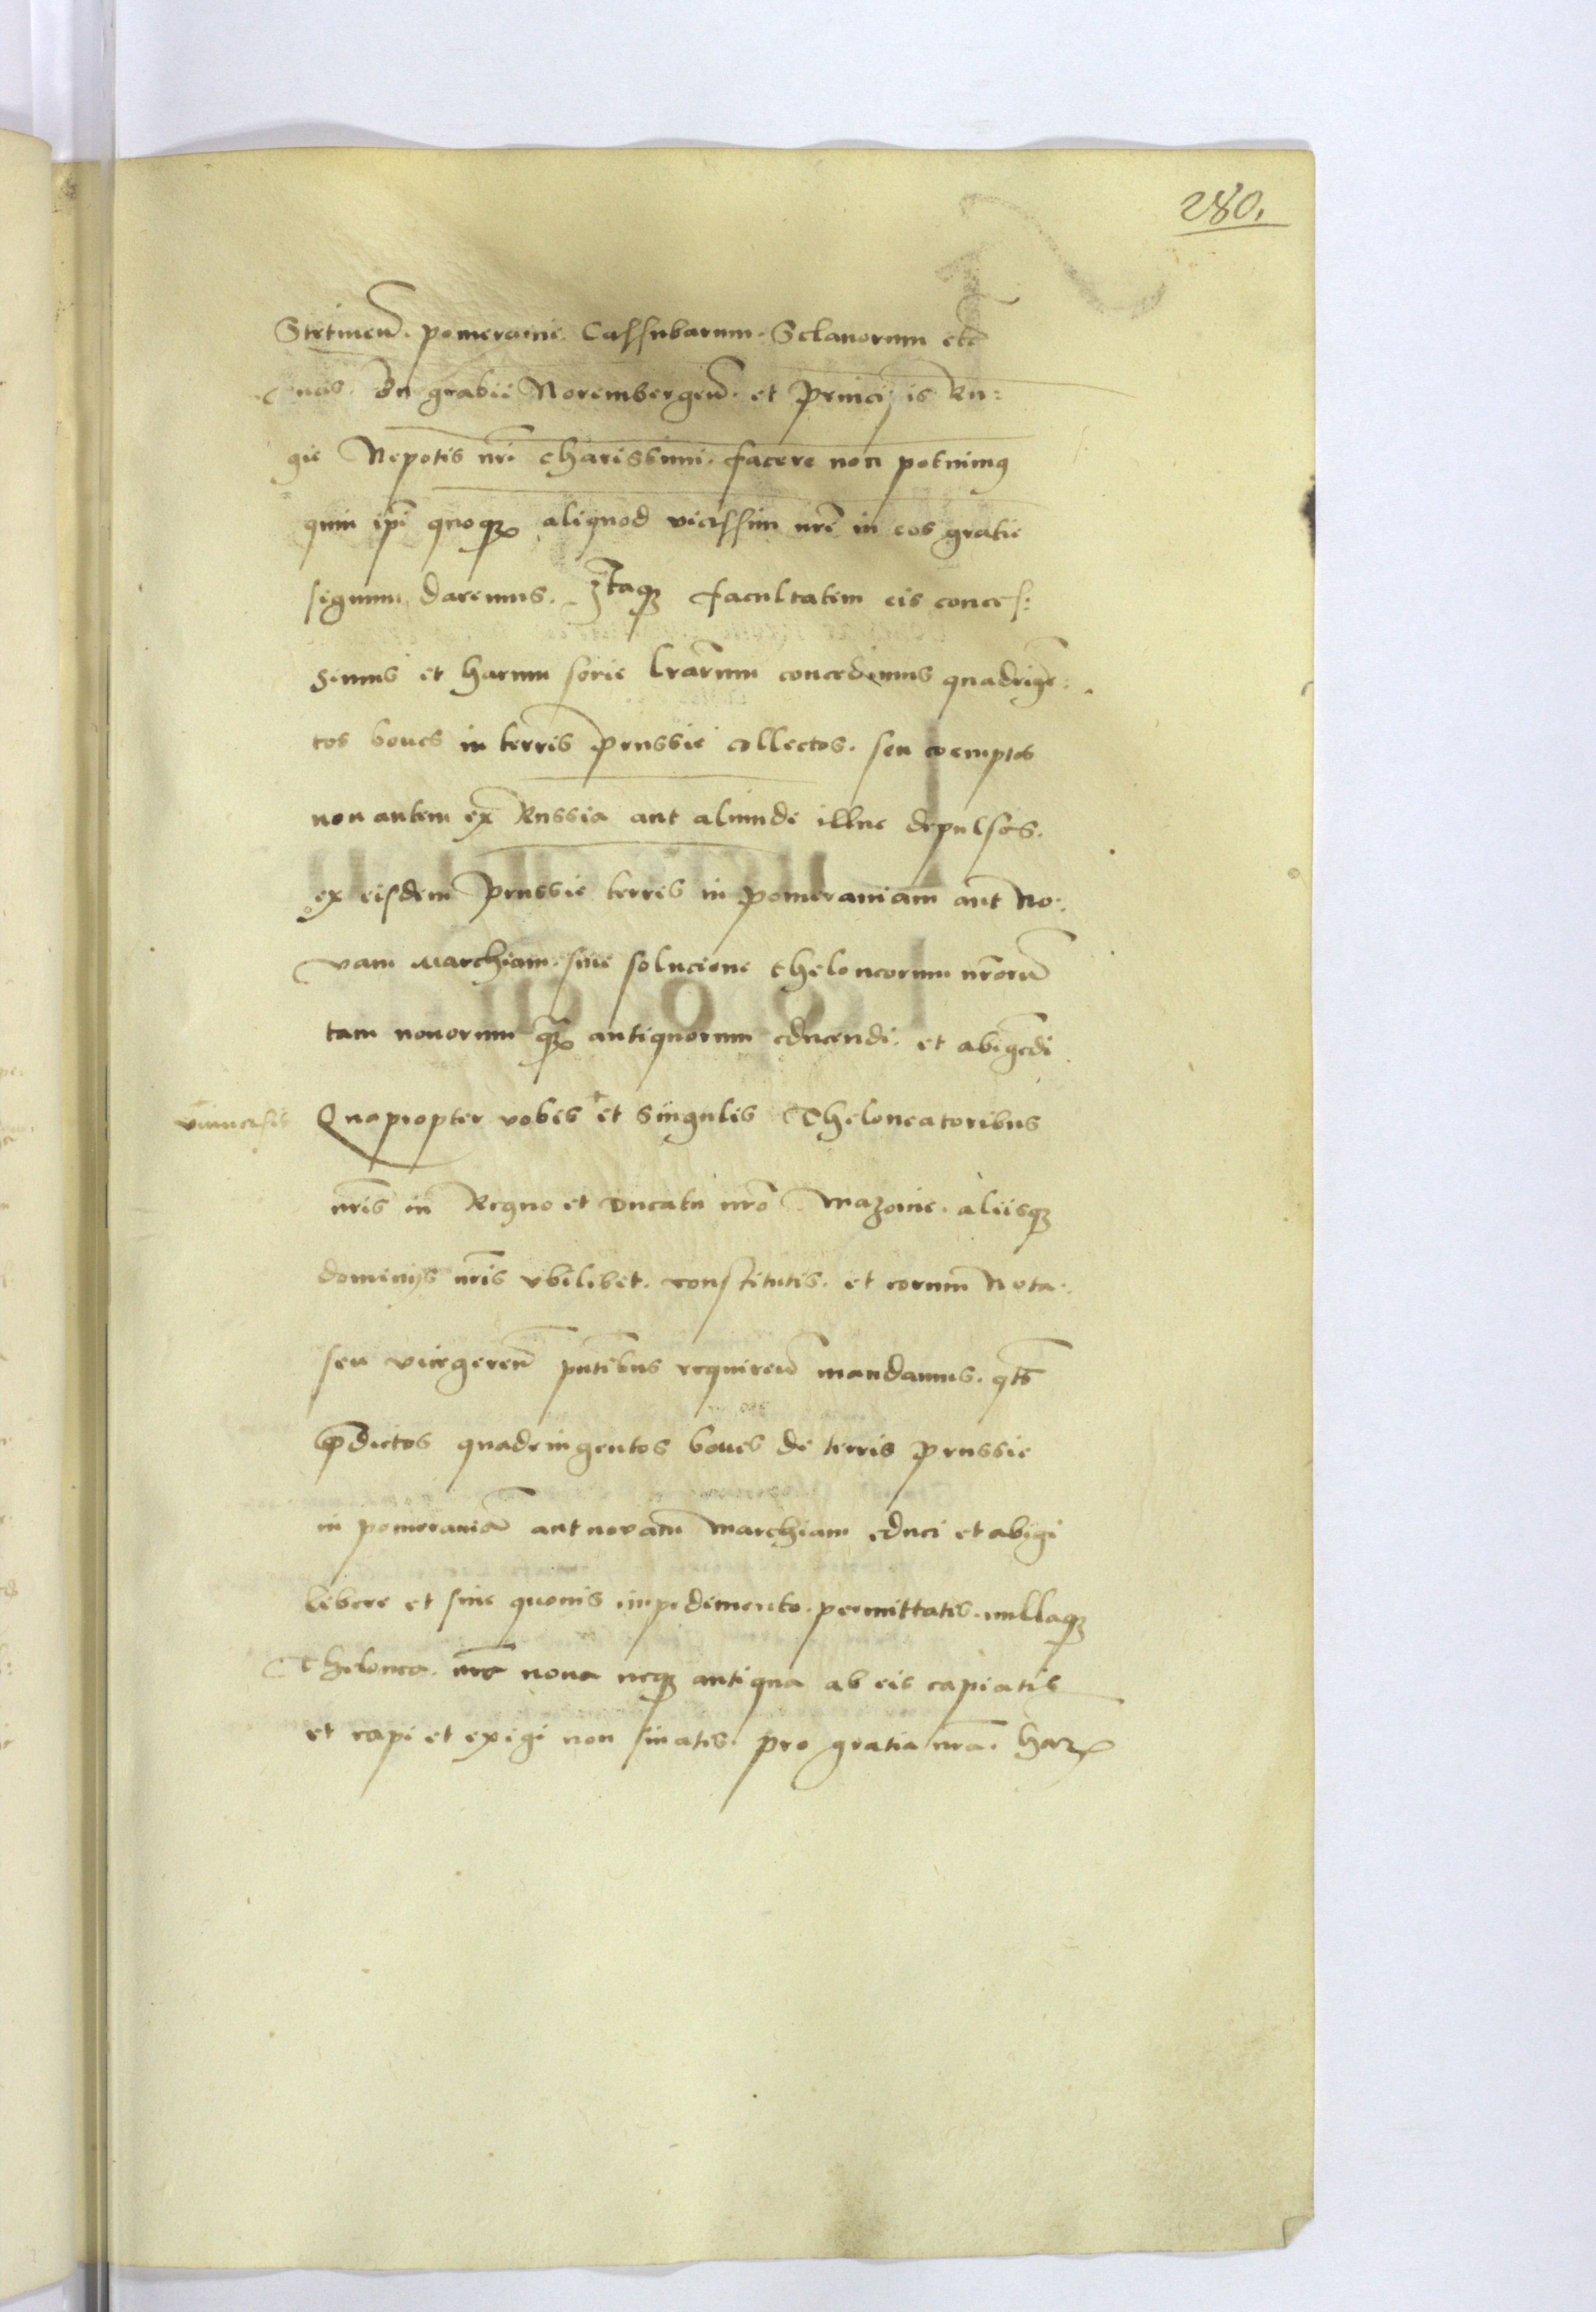 280.
Stetineñ. pomeranie. Cassubarum. Sclavorum etc̃
Ducis. Burgrabii Norembergeñ. et Principis Ru:
gie Nepotis nr̃i charissimi. facere non potuimus
quin ip̃i quoqꝫ aliquod vicissim nr̃e in eos gratie
signum daremus. Itaqꝫ facultatem eis conces:
simus et harum serie lr̃arum concedimus quadringẽ:
tos boues in terris prussie collectos. seu coemptos
non autem ex Russia aut aliunde illuc depulsos.
ex eisdem Prussie terris in pomeraniam aut No:
vam Marchiam. sine solucione theloneorum nr̃orũ
tam nouorum qꝫ antiquorum educendi. et abigẽdi
vniuersis
Quapropter vobis et singulis Theloneatoribus
nr̃is in Regno et Ducatu nr̃o Mazouie. aliisqꝫ
dominijs nr̃is vbilibet. constitutis. et eorum Nota.
seu vicegereñ pñtibus requireñ mandamus. qt̃s
p̃dictos quadringentos boues de terris prussie
in pomeraniã aut novam Marchiam educi et abigi
libere et sine quouis impedimento. permittatis. nullaqꝫ
Thelonea. nr̃a noua neqꝫ antiqua ab eis capiatis
et capi et exigi non sinatis. pro gratia nr̃a. harꝫ